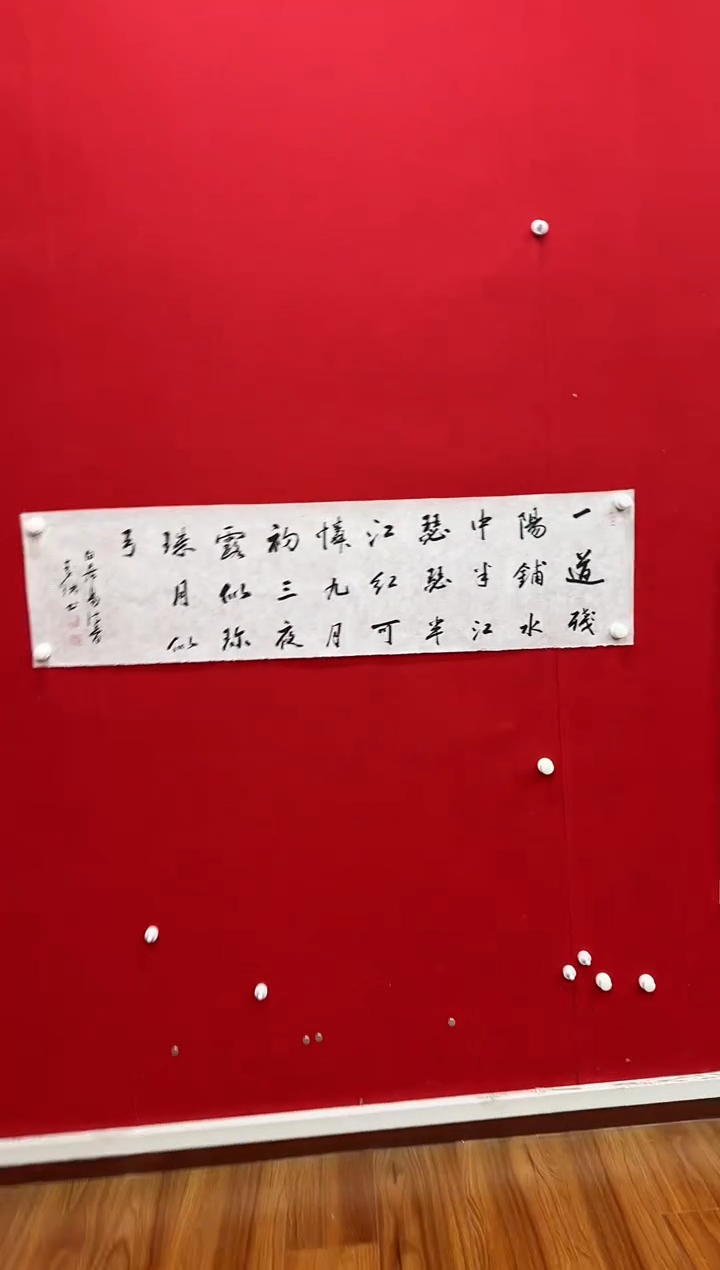 一道殘
陽鋪水
中半江
瑟瑟半
江紅可
憐九月
初三夜
露似珍
珠月似
弓
白居易